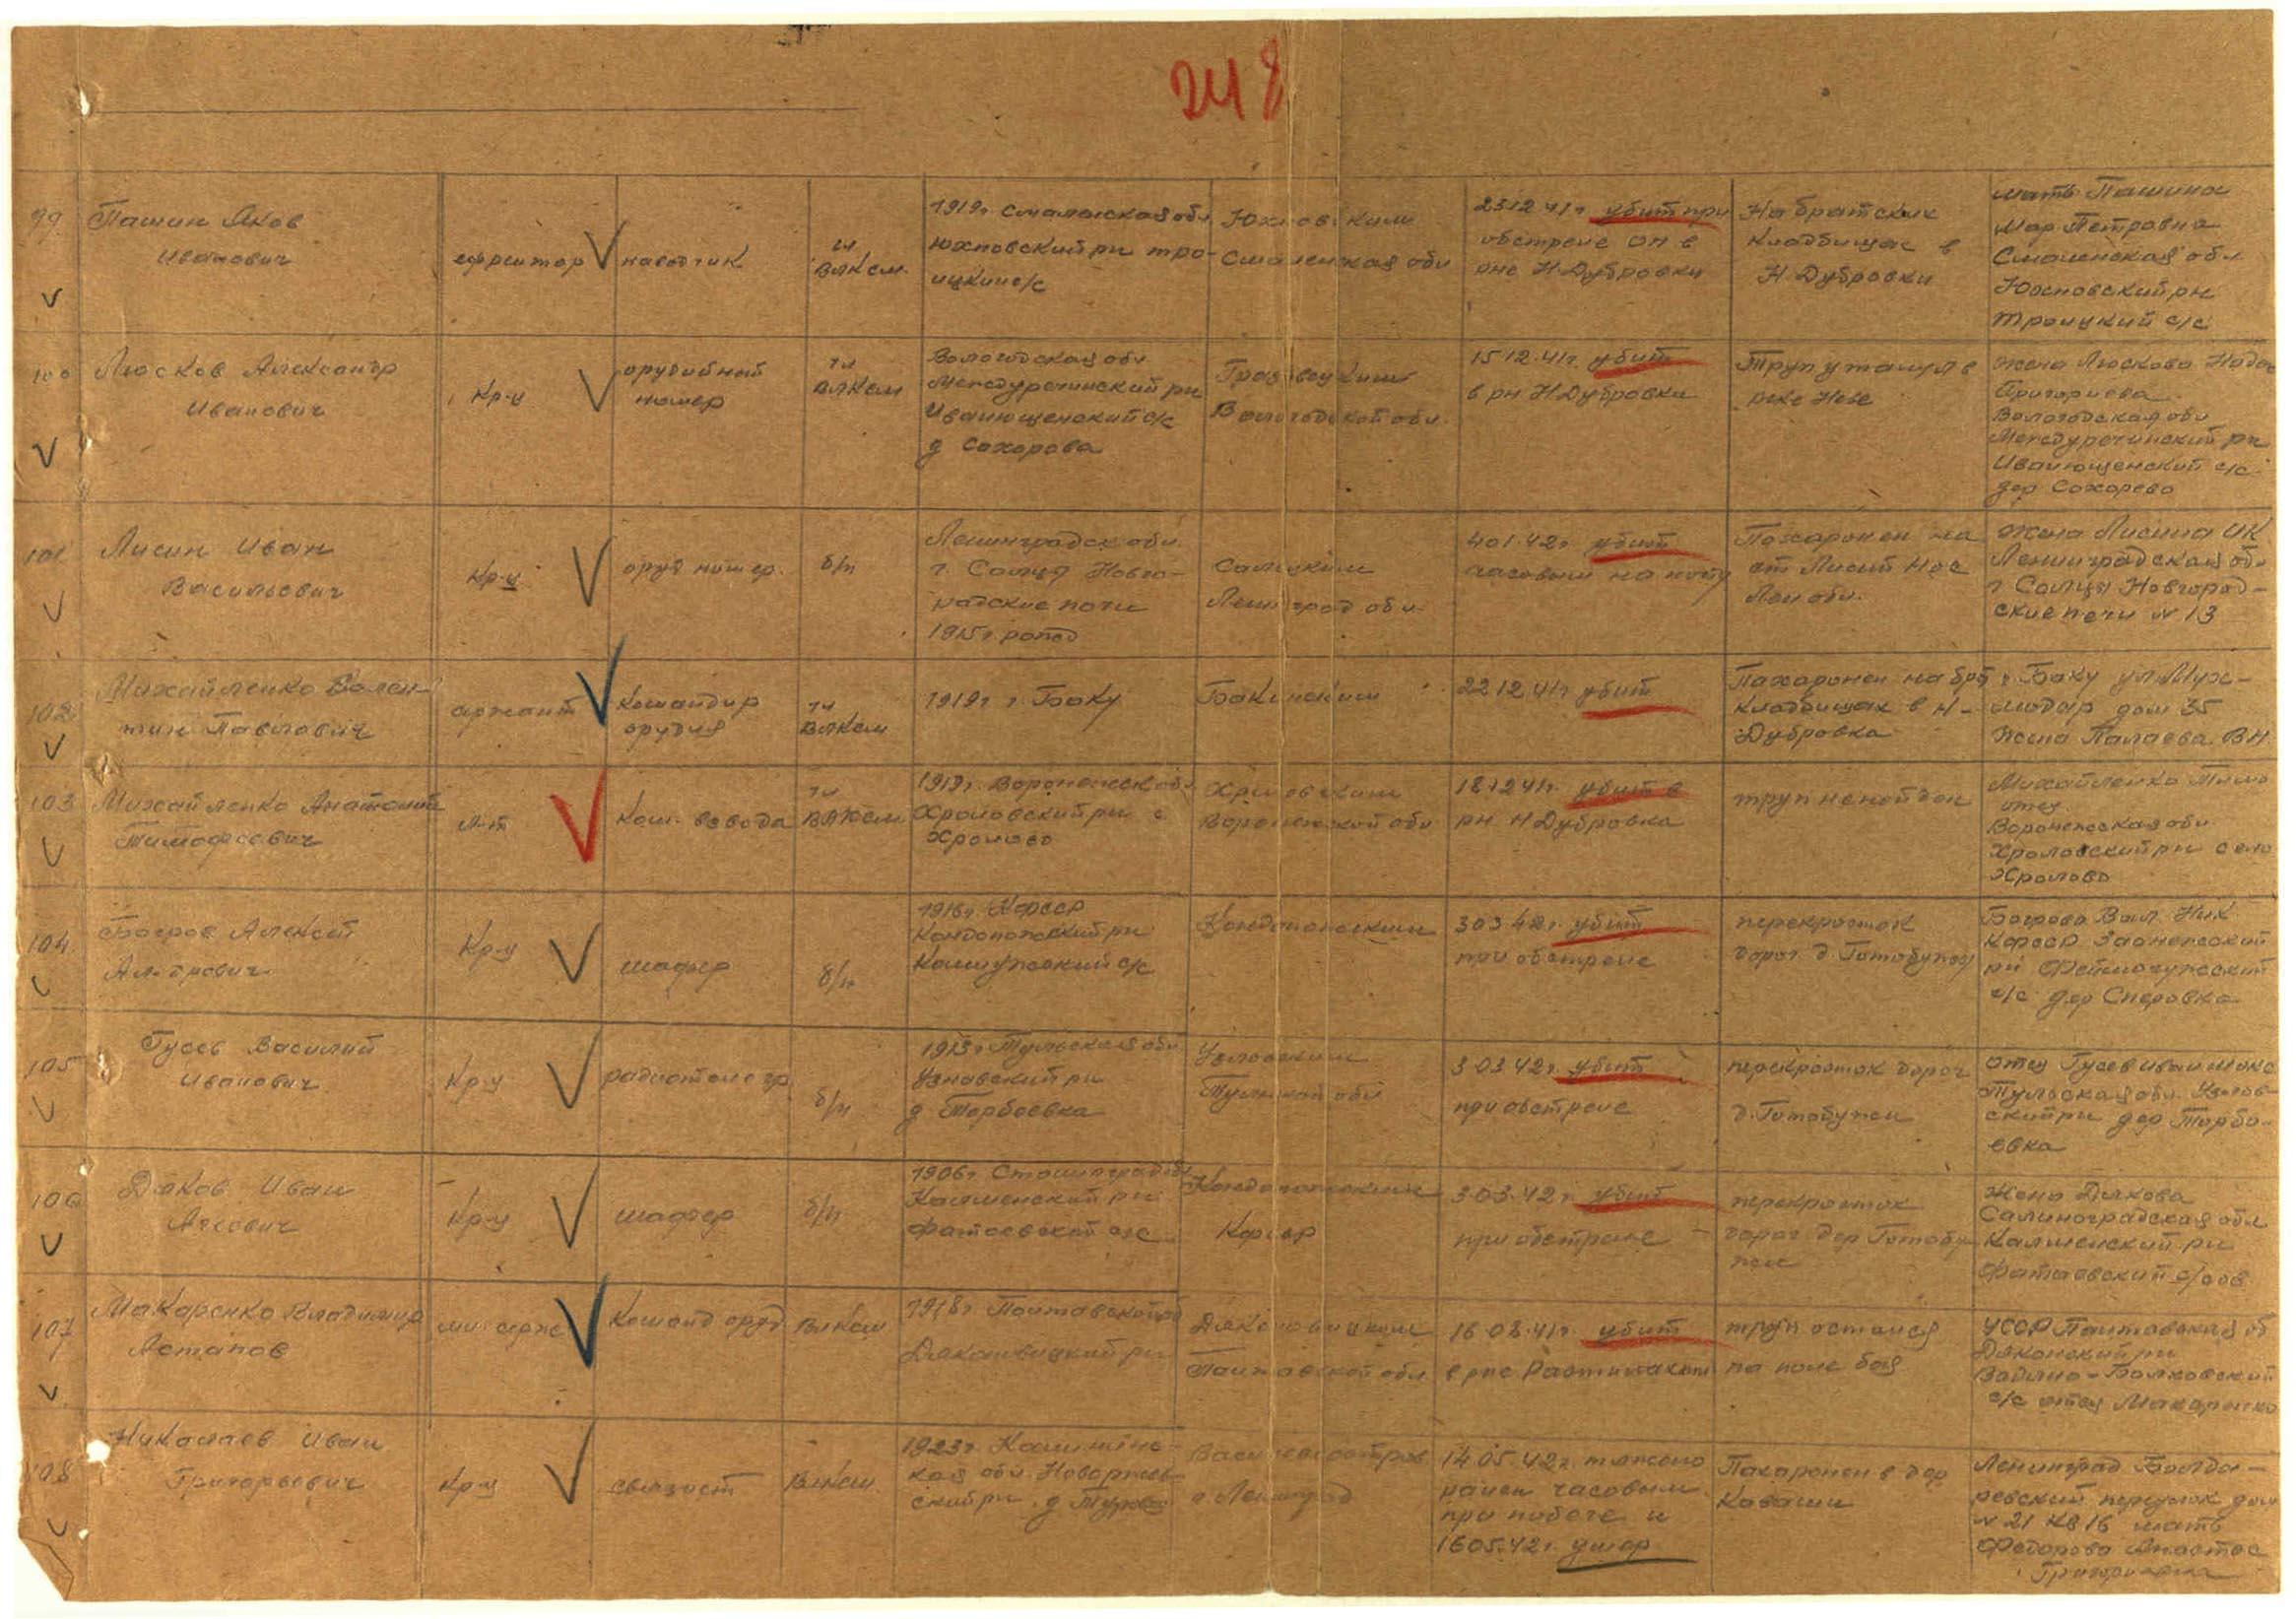 248
99 Пашин Яков
Иванович
ефрейтор
наводчик
чл
ВЛКСМ
1919г Смоленская обл
Юхновский рн Тро-
ицкий с/с
Юхновским
Смоленская обл
23 12 41г убит при
обстреле он в
рне Н. Дубровки
На братских
кладбищах в
Н Дубровки
мать Пашина
Мар Петровна
Смоленская обл
Юхновский рн
Троицкий с/с
100 Люсков Александр
Иванович
Кр-ц
орудийный
номер
чл
ВЛКСМ
Вологодская обл
Междуреченский рн
Иванющенский с/с
д Сохорова
Грязовецким
Вологодской обл
15 12.41г. убит
в рн Н Дубровки
Труп утанул в
реке Неве
жена Люскова
Григориева
Вологодская обл
Междуреченский рн
Иванющенский с/с
дер Сохорево
101 Лисин Иван
Васильевич
Кр-ц
оруд номер.
б/п
Ленинградск обл
г. Солцы Новго-
радские
1915г рожд
Салецким
Ленинград обл
4 01.42г. убит
часовым на посту
Похоронен на
ст Лисий Нос
Лен обл.
жена Лисина ИК
Ленинградская обл
г Солцы Новгород-
ские печи N 13
102 Михайленко Вален-
тин Павлович
сржант
Командир
орудия
чл
ВЛКСМ
1919г г. Баку
Бакинским
22 12 41г убит
Пахоронен на бра
кладбищах в Н-
Дубровка
г Баку ул Мух-
дом 35
Жена Палаева В Н
103 Михайленко Анатолий
Тимофеевич
Л-т
Ком. взвода
чл
ВЛКСМ
1919г. Воронежск обл
Хроловский рн с
Хролово
Хроловским
Воронежской обл
18 12 41г. убит в
рн Н Дубровка
труп не найден
Михайленко Тимо
отец
Воронежская обл
Хроловский рн село
Хролово
104. Богров Алексей
Кр-ц
шофер
б/п
1916г Кфсср
Кондопожский рн
с/с
Кондопожским
3 03 42г. убит
при обстреле
перекресток
дорог д Готобужи
Богрова Вал. Ник
Кфсср Заонежский
рн
с/с дер Сперовка
105 Гусев Василий
Иванович
Кр-ц
б/п
1913г Тульская обл
Узловский рн
д Торбеевка
Узловским
Тульской обл
3 03 42г. убит
при обстреле
перекресток дорог
д. Готобужи
отец Гусев Иван
Тульская обл. Узлов-
ский рн дер Торбе-
евка
106 Дяков Иван
Кр-ц
шофер
б/п
1906г Сталинград обл
Калшенский рн
Кондопожским
Кфсср
3 03.42г. убит
при обстреле
перекресток
дорог дер Готобу
жи
Жена Дякова
Салинградская обл
Калшенский рн
107 Макаренко Владимир
Астапов
мл. серж
Команд оруд
ВЛКСМ
1918г Полтавской об
рн
Полтавской обл
16 08.41г. убит
в рне
труп остался
на поле боя
УССР Полтавская об
с/с отец Макаренко
108 Николаев Иван
Григорьевич
Кр-ц
связист
ВЛКСМ.
1923г Калининс-
кая обл. Новоржев-
ский рн. д
Василеостров
г Ленинград
14 05.42г. тяжело
ранен часовым
при побеге и
16 05.42г. умер
Пахоронен в дер
Коваши
Ленинград Болда-
ревский переулок дом
N 21 кв 16 мать
Федорова Анастас
Григориевна